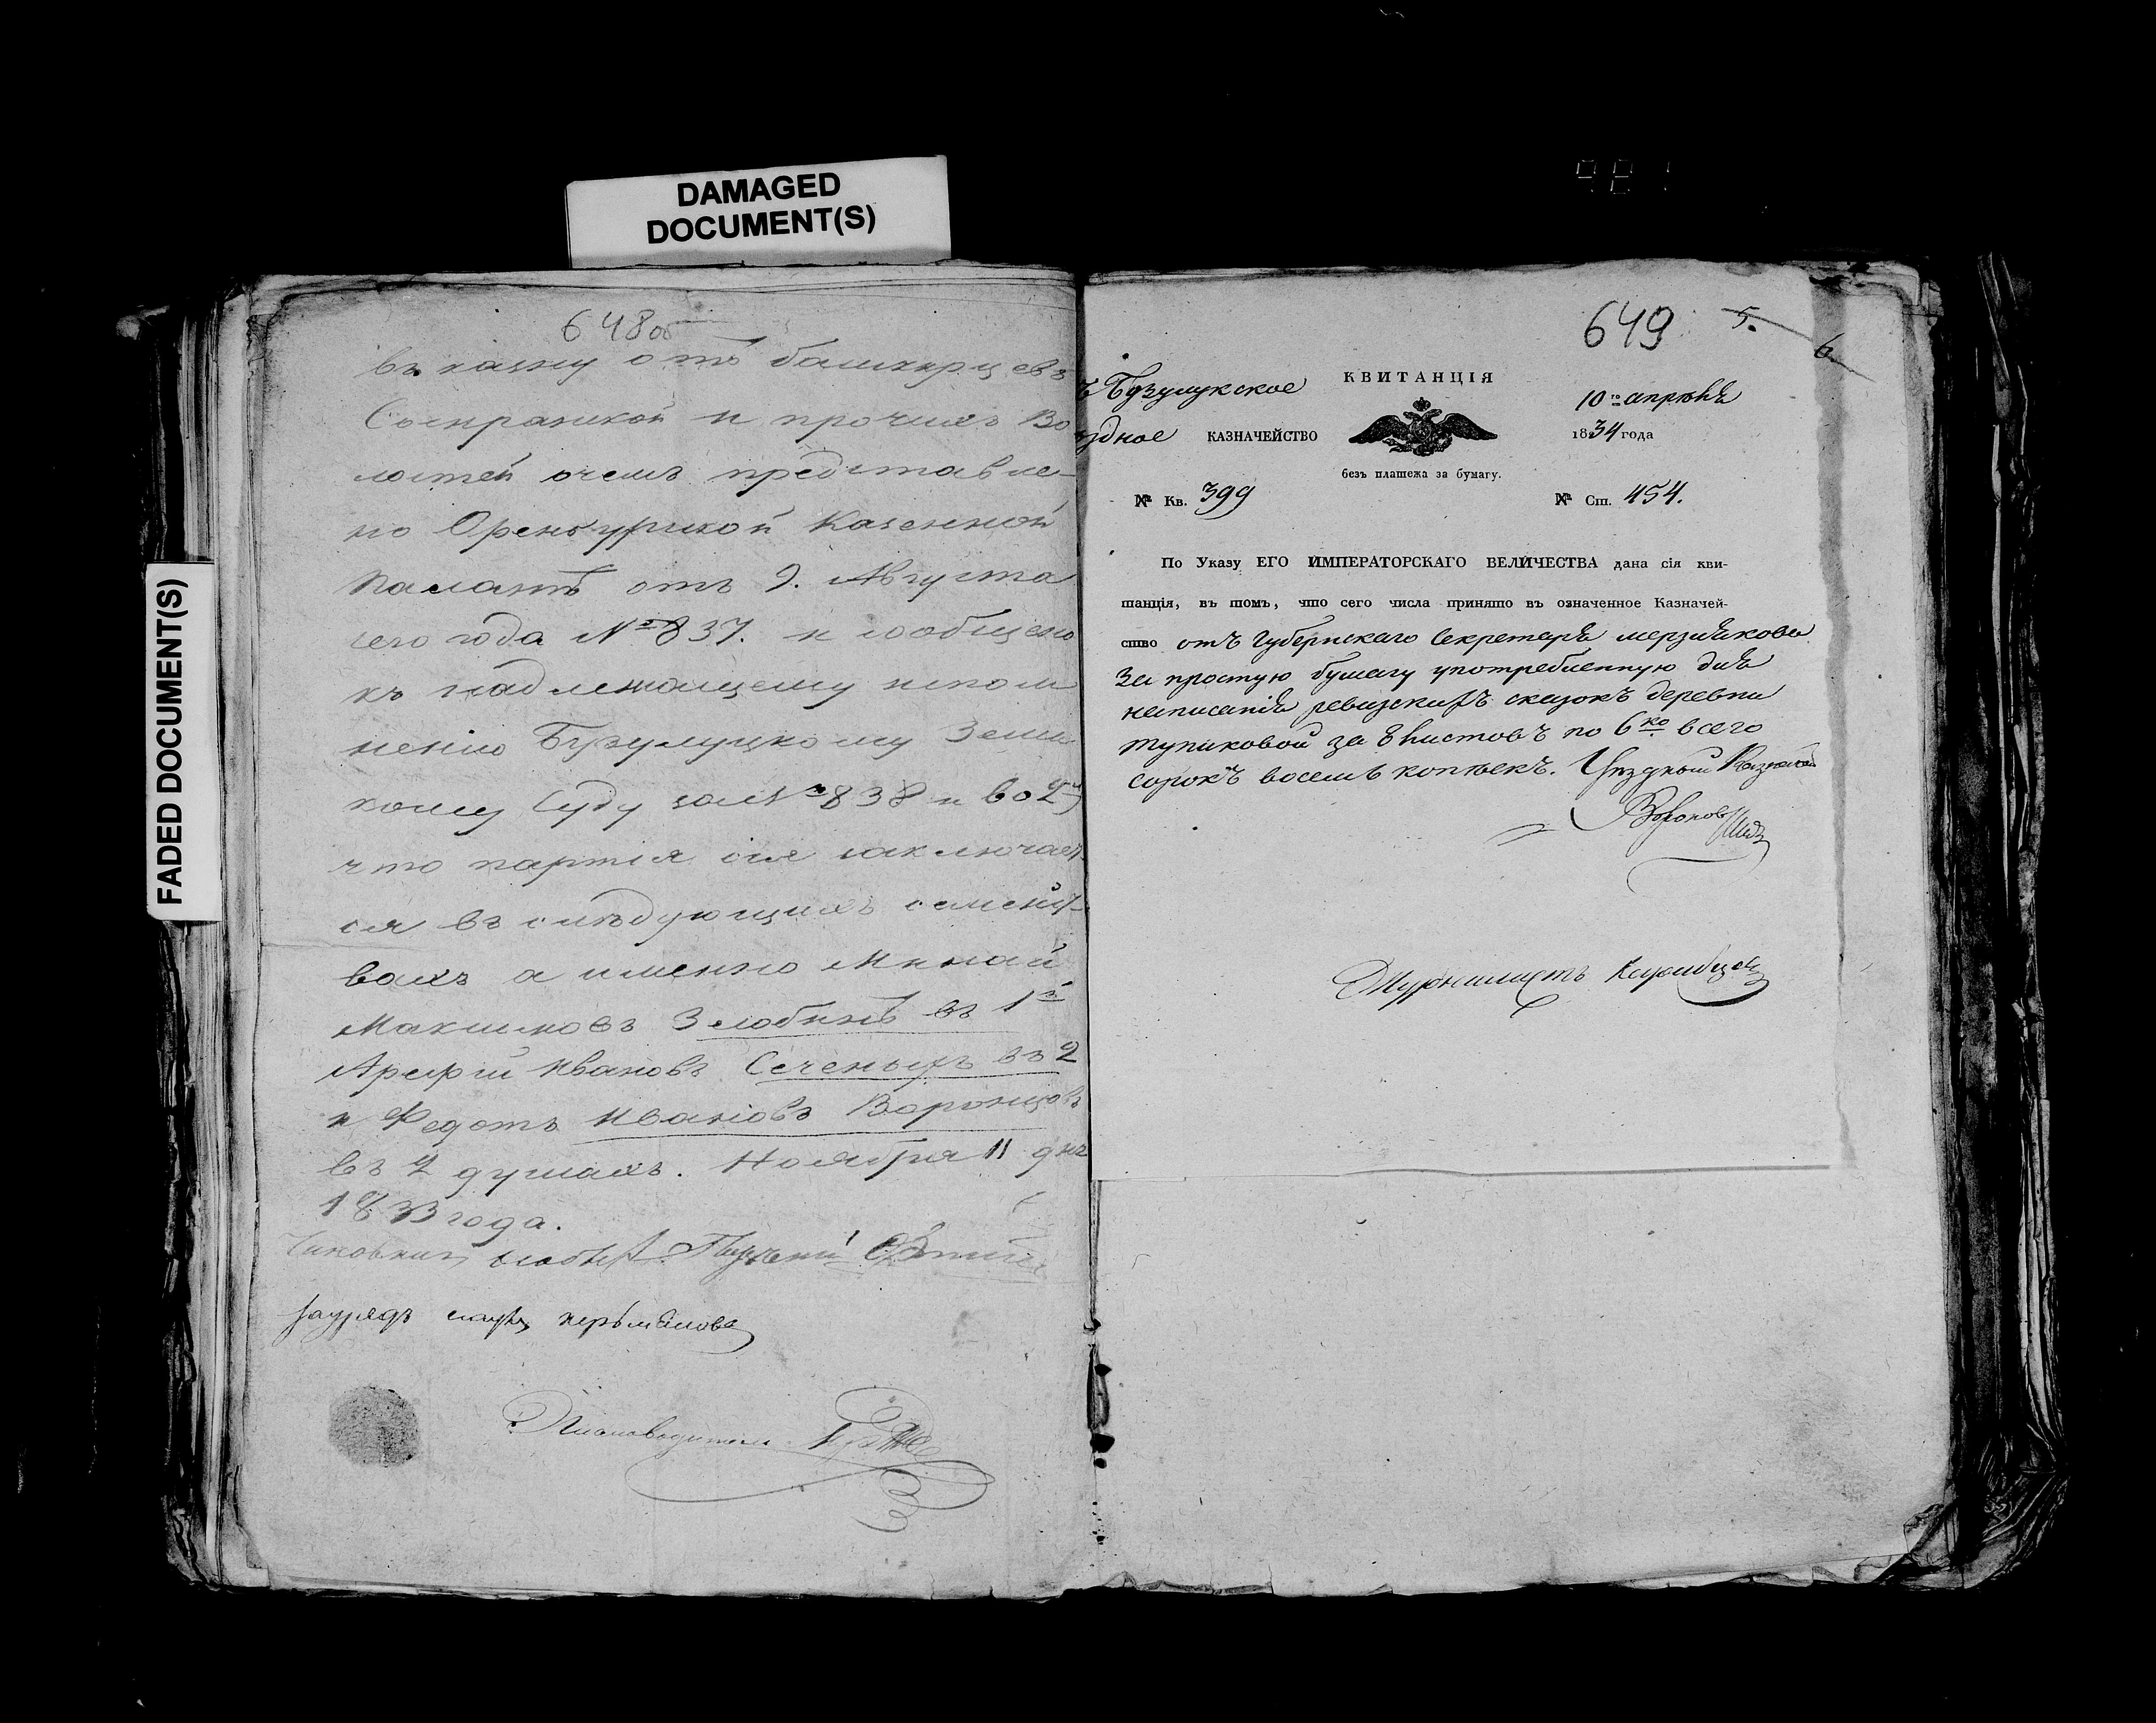 DAMAGED
DOCUMENT(S)
FADED DOCUMENT(S)
648об
въ казну отъ башкирцевъ
и прочихъ во
лостей очемъ представле-
но Оренбургской Казенной
Палатѣ отъ 9. Августа
сего года № 837. и сообщено
къ надлежащему испол
нению Бузулуцкому Земс
кому Суду за № 838 и во 2х
что партия сия заключает
ся въ следующихъ семейст
вахъ а именно Минай
Максимовъ Злобинъ въ 1й
Арефий Ивановъ Сеченыхъ въ 2
и Федотъ Ивановъ Воронцовъ
въ 2 душахъ. Ноября 11 дня
1833 года.
Зауряд
649 5.
6
ъ Бузулукское
КВИТАНЦІЯ
10го апреля
здное КАЗНАЧЕЙСТВО
1834 года
безъ платежа за бумагу.
№ Кв. 399
№ Ст. 454.
По Указу ЕГО ИМПЕРАТОРСКАГО ВЕЛИЧЕСТВА дана сія кви-
танція, въ томъ, что сего числа принято въ означенное Казначей-
ство отъ Губернскаго Секретаря мерзлякова
За простую бумагу употребленную для
написанія ревизскихъ сказокъ деревни
тупиковой за 8 листовъ по 6ко всего
сорокъ восемь копѣекъ. Уѣздный Казначей
Журналистъ